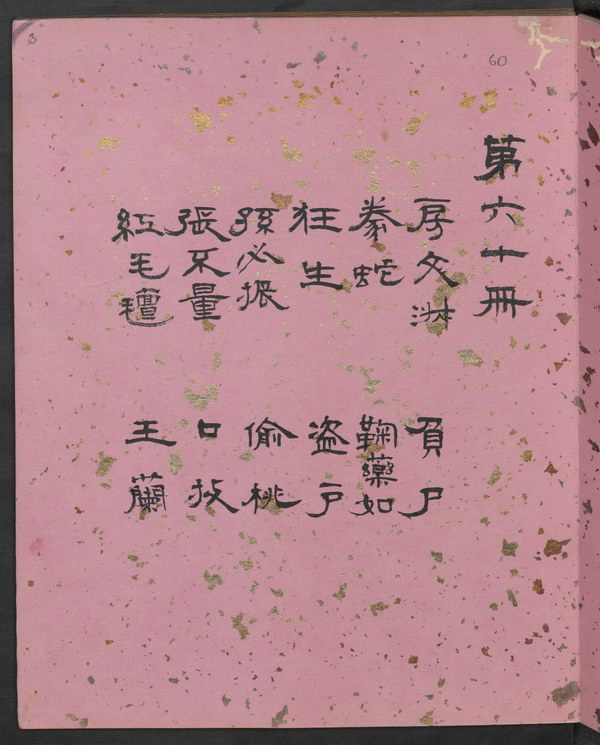 第六十冊
房文淑
負尸
豢蛇
鞠藥如
狂生
盜戶
孫必振
偷桃
張不量
口技
紅毛氈
王蘭
3
60